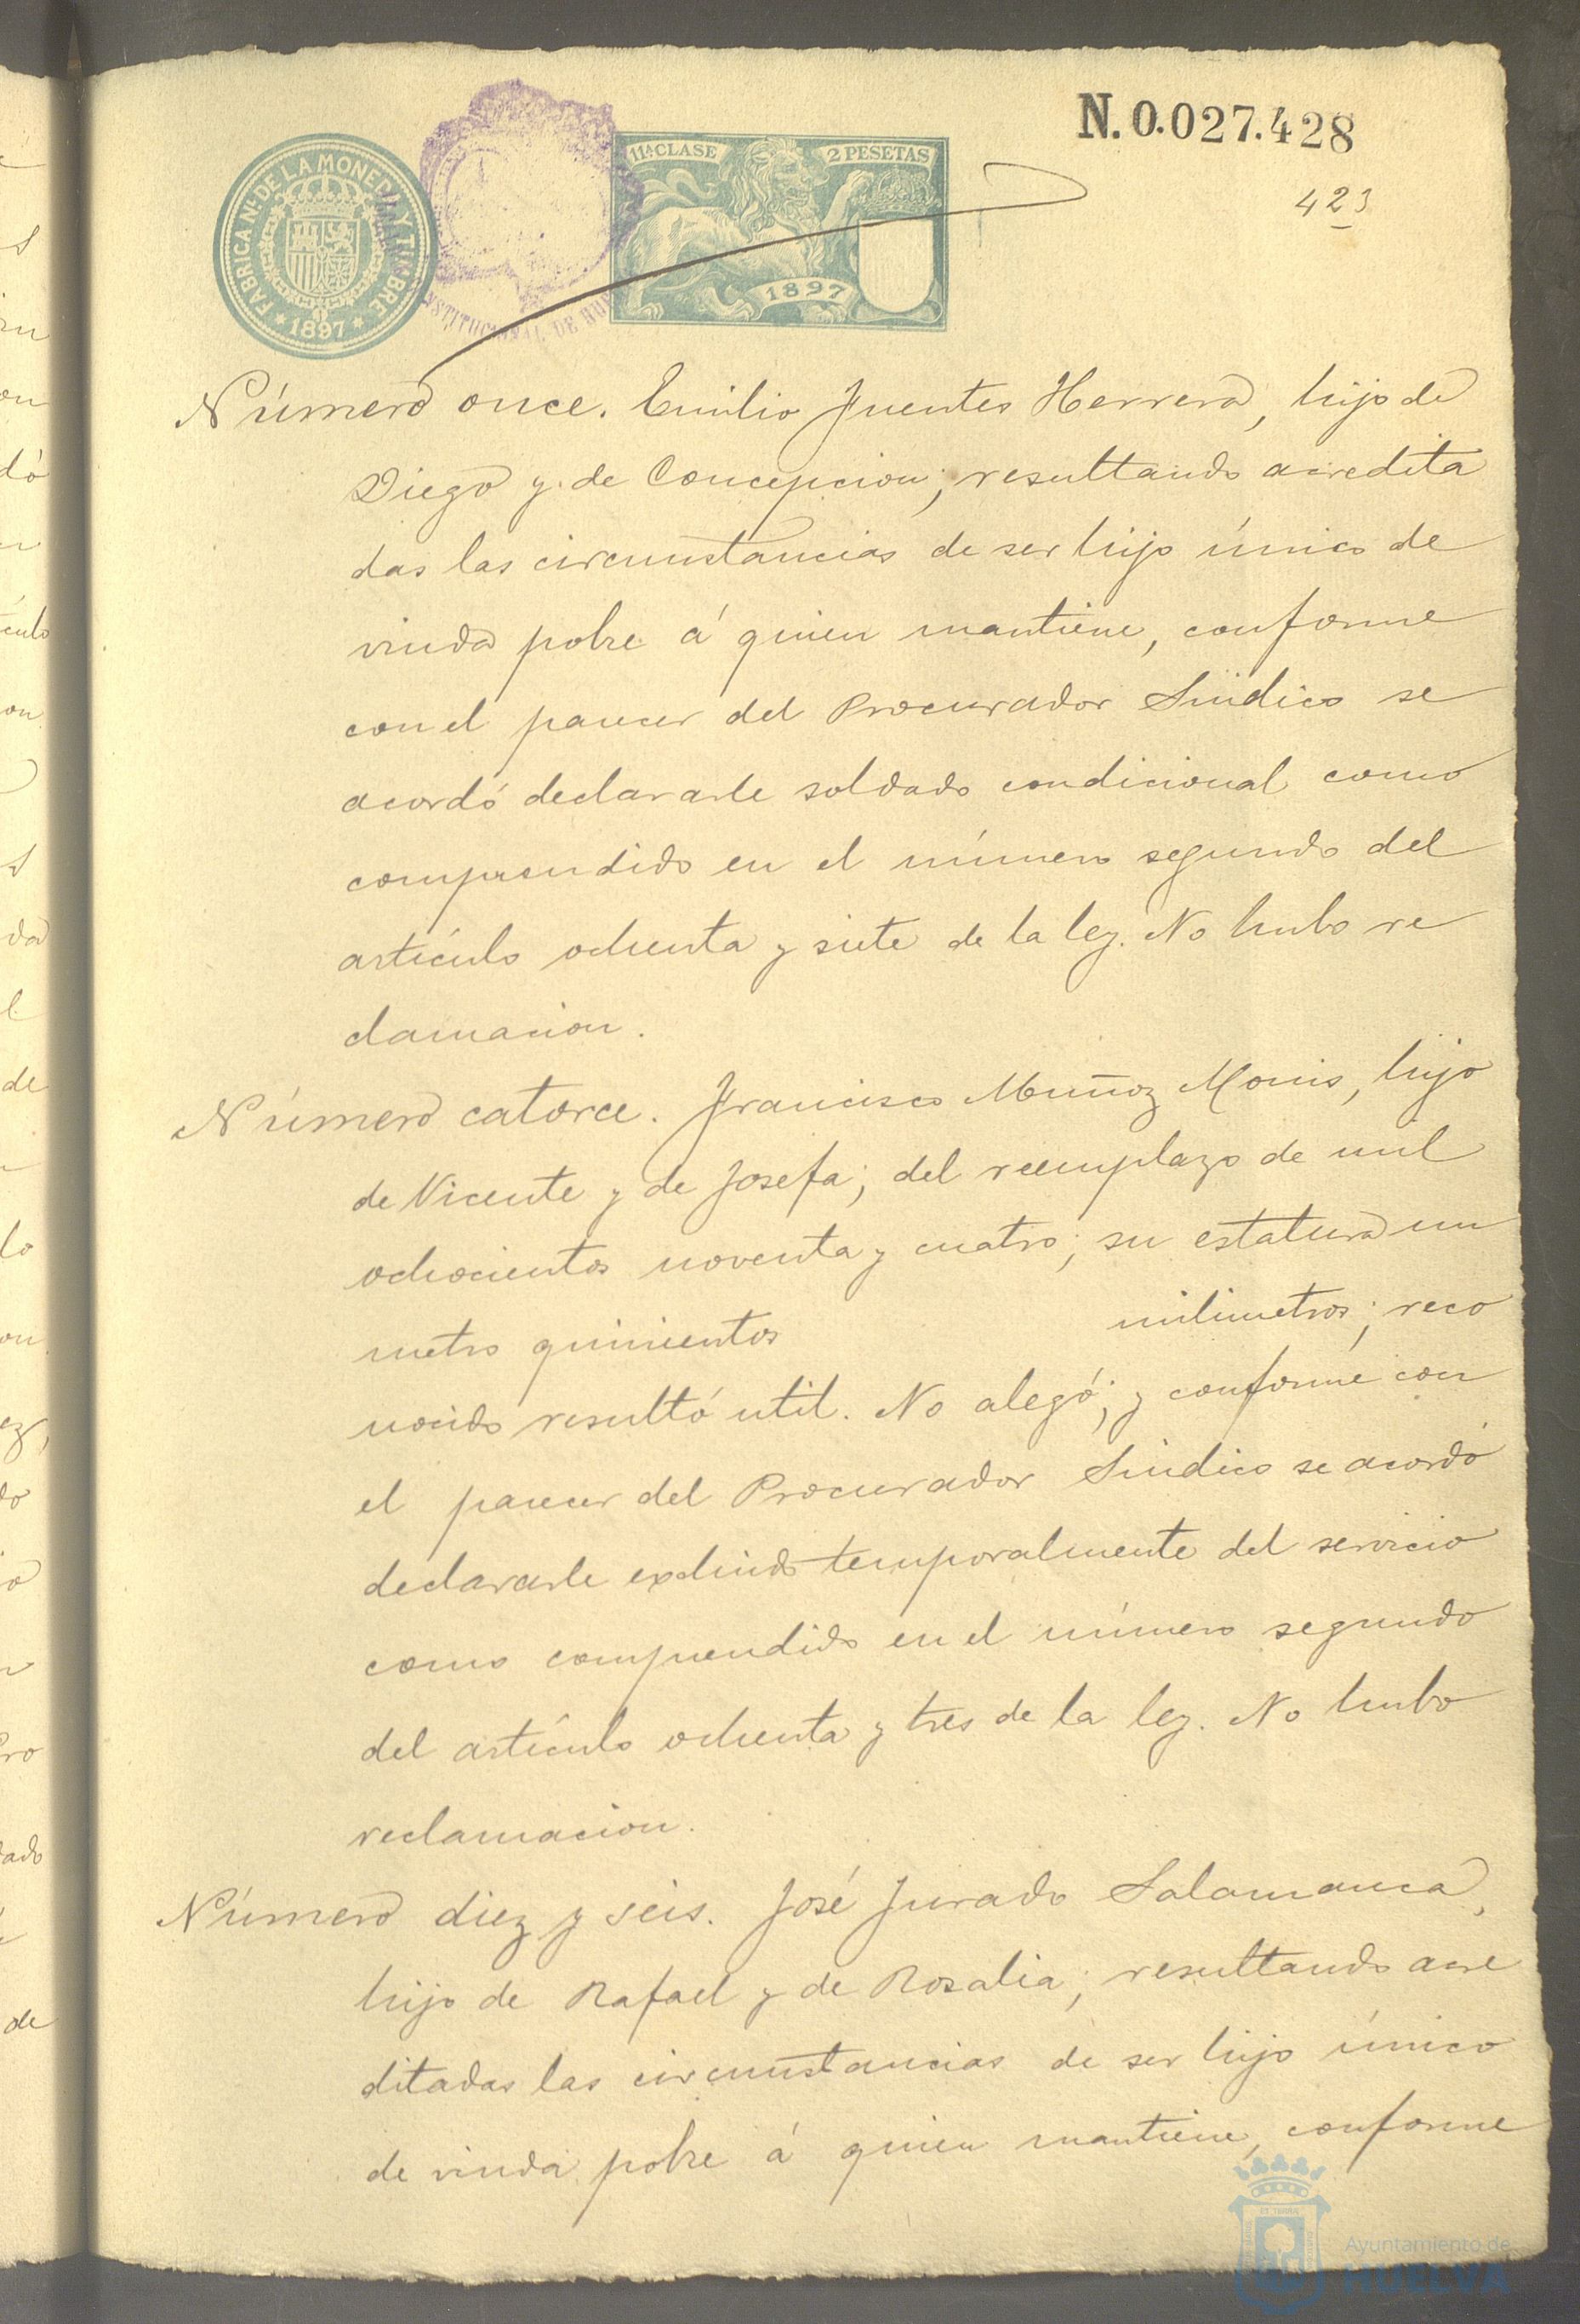 N. 0.027.428
423
FABRICA NL. DE LA MONEDA Y TIMBRE
* 1897 *
11ª CLASE
2 PESETAS
1897
CONSTITUCIONAL DE HU
Número once. Emilio Fuentes Herrera, hijo de
Diego y de Concepcion; resultando acredita
das las circunstancias de ser hijo único de
viuda pobre á quien mantiene, conforme
con el parecer del Procurador Sindico se
acordó declararle soldado condicional como
comprendido en el número segundo del
artículo ochenta y siete de la ley. No hubo re
clamacion.
Número catorce. Francisco Muñoz Monis, hijo
de Vicente y de Josefa; del reemplazo de mil
ochocientos noventa y cuatro; su estatura un
metro quinientos milimetros; reco
nocido resultó util. No alegó; y conforme con
el parecer del Procurador Sindico se acordó
declararle excluido temporalmente del servicio
como comprendido en el número segundo
del artículo ochenta y tres de la ley. No hubo
reclamacion.
Número diez y seis. José Jurado Salamanca,
hijo de Rafael y de Rosalia; resultando acre
ditadas las circunstancias de ser hijo único
de viuda pobre á quien mantiene, conforme
Ayuntamiento de
HUELVA